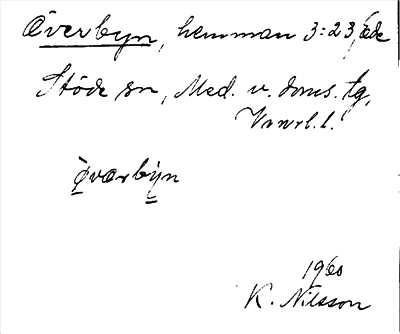 Överbyn, hemman 3:23,
Stöde sn, Med. v. doms. tg,
Vnrl. l.
Øværbyn
1960
K. Nilsson